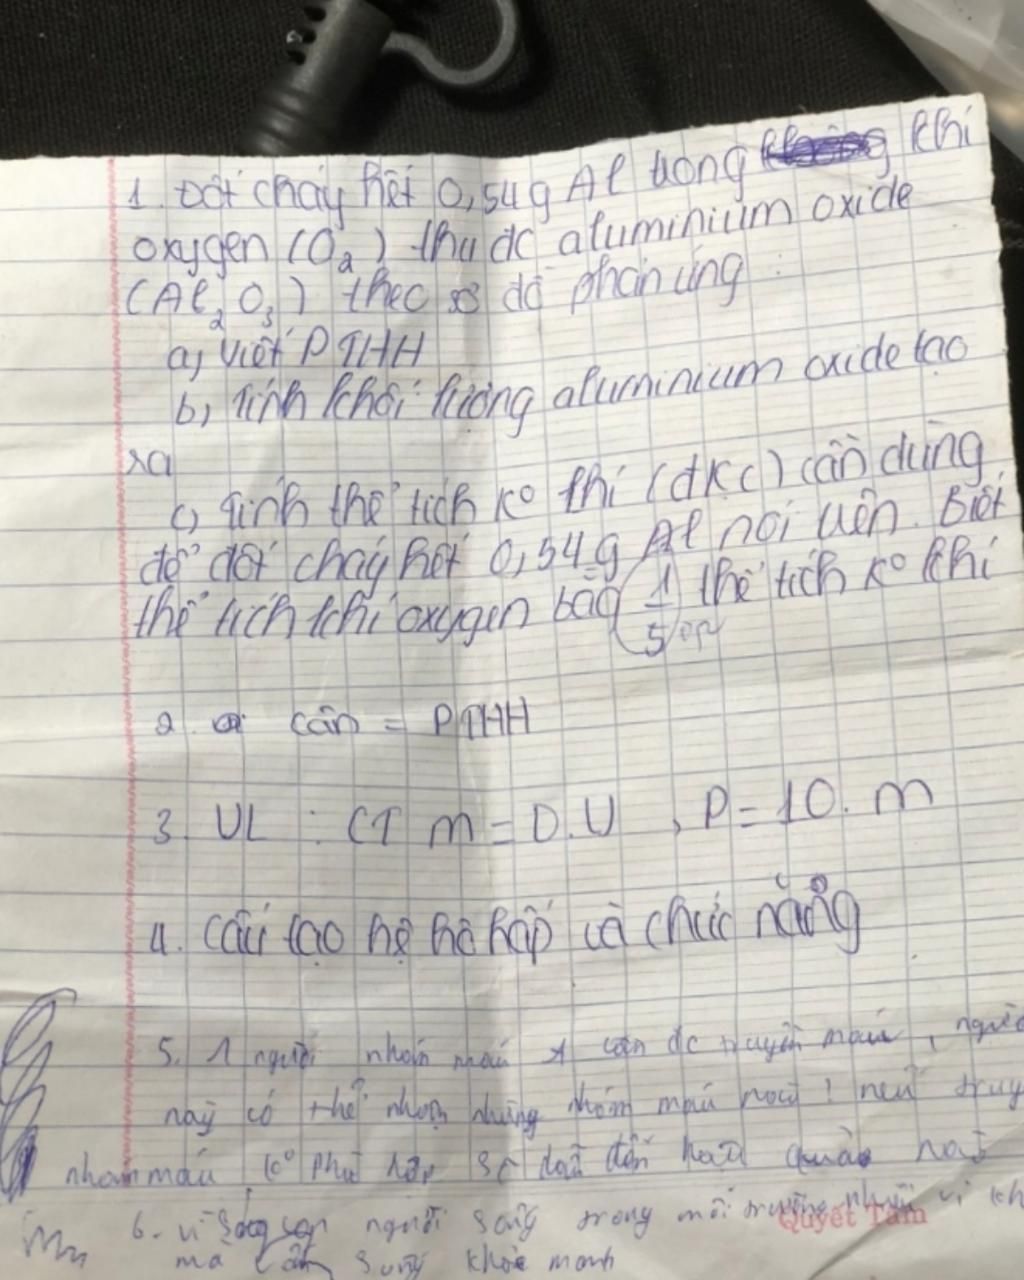 1. Đốt cháy hết 0,54g Al trong khí
oxygen (O2) thu đc aluminium oxide
(Al2O3) theo sơ đồ phản ứng :
a, Viết PTHH
b, Tính khối lượng aluminium oxide tạo
ra
c, Tính thể tích ko khí (đkc) cần dùng
để đốt cháy hết 0,54g Al nói trên. Biết
thể tích khí oxygen bằg 1/5 thể tích ko khí
2. cân = PTHH
3. VL : CT m = D.V , P = 10.m
4. Cấu tạo hệ hô hấp và chức năng
5. 1 người nhóm máu A cần đc truyền máu, người
này có thể nhận những nhóm máu nào ! nếu truy
nhóm máu ko phù hợp sẽ dẫn đến hậu quả
6. vì người sống trong môi trường nhiều vi kh
mà vẫn sống khỏe mạnh
Quyết Tâm